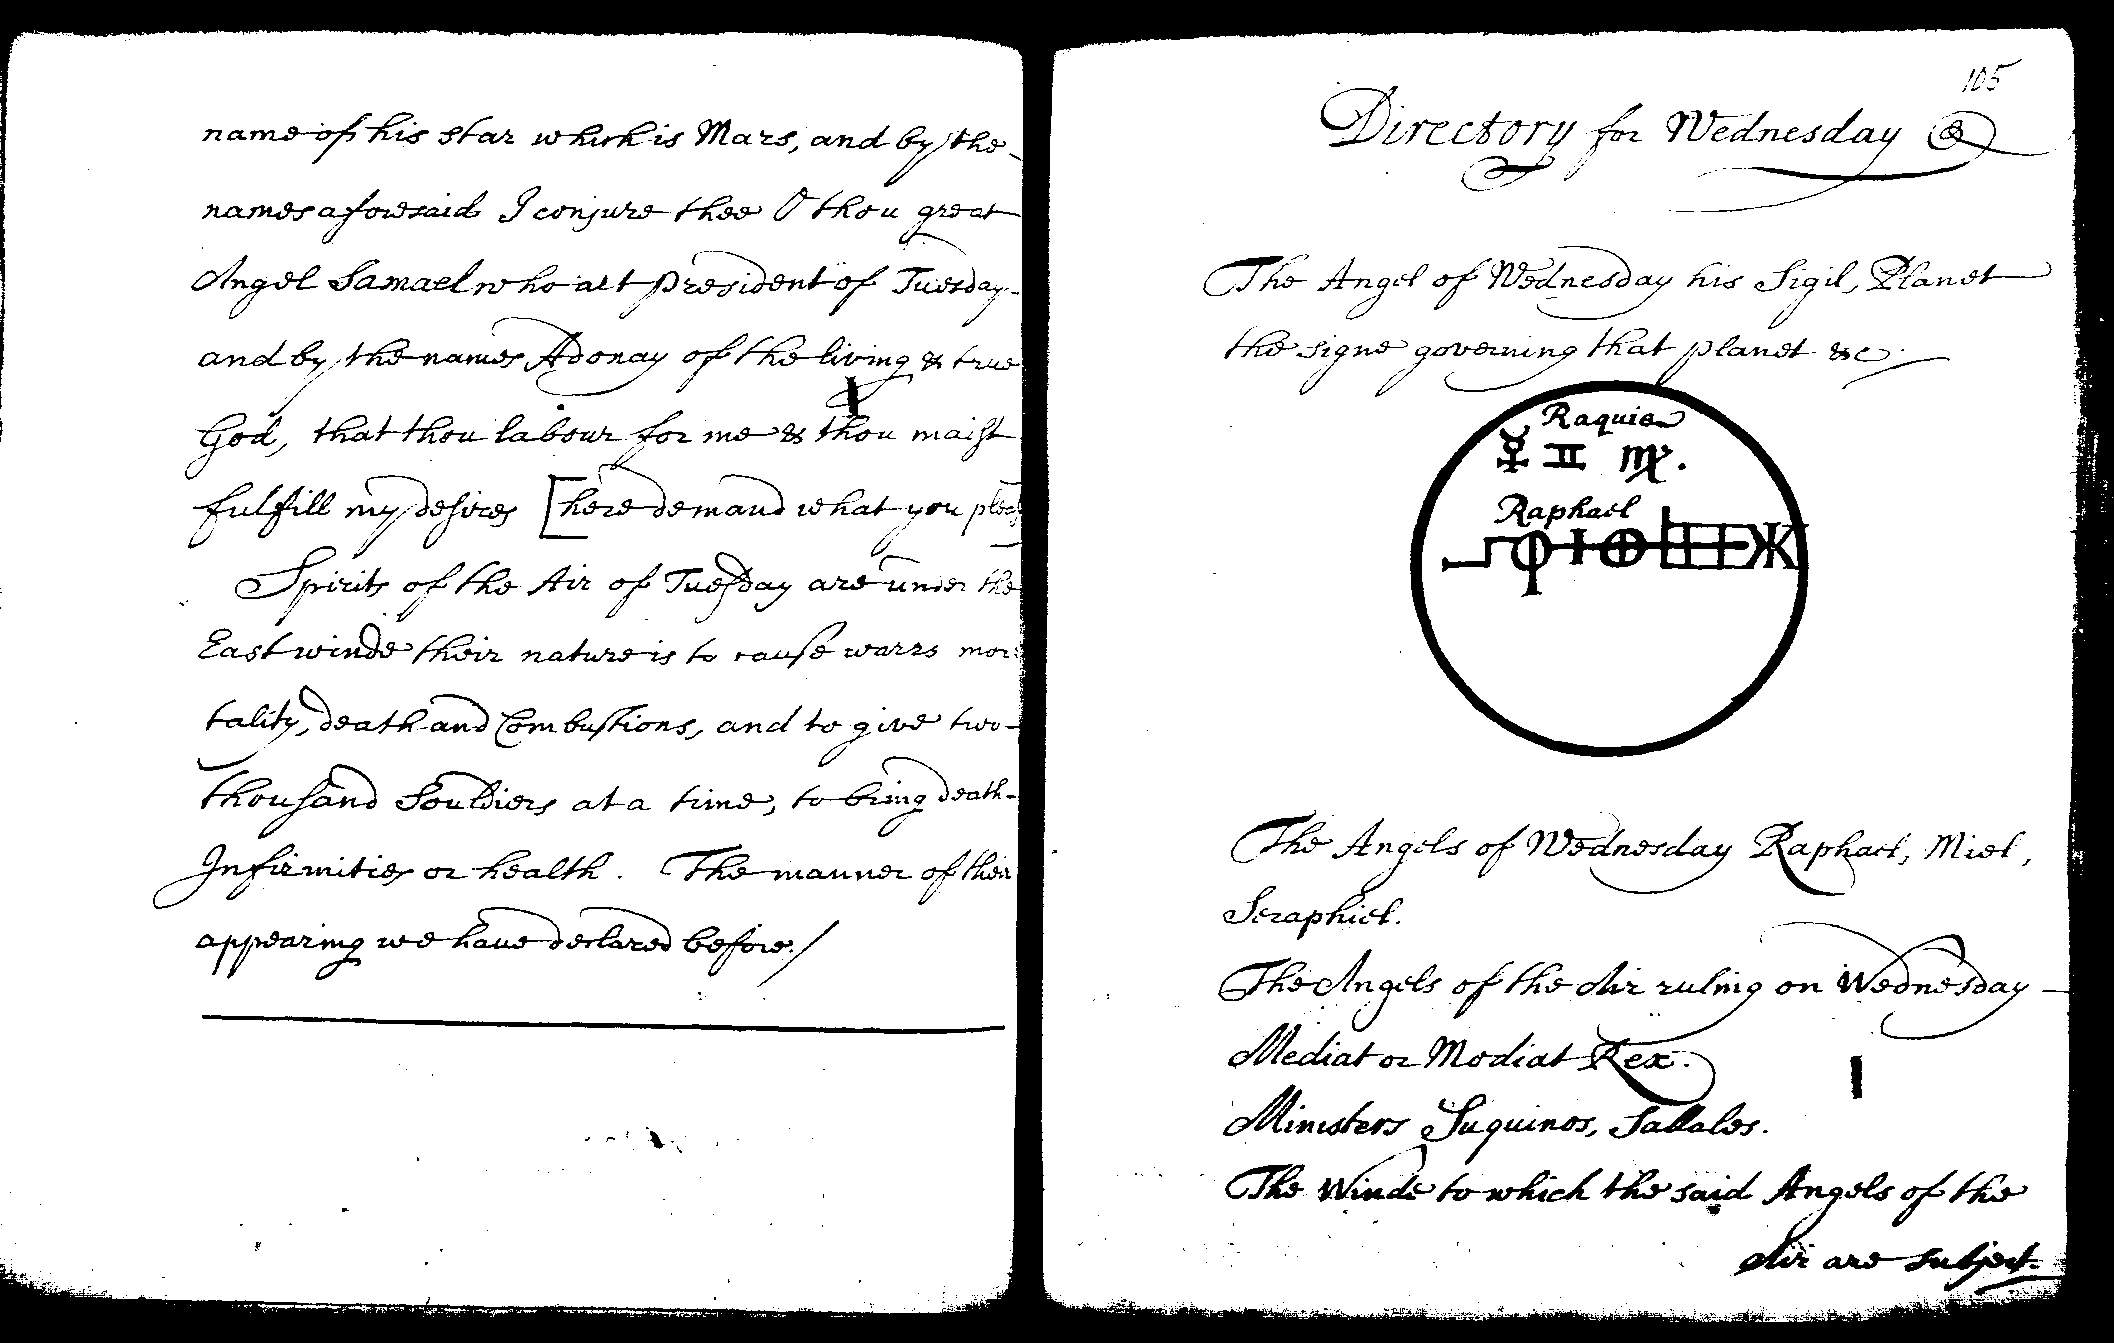 name of his star which is Mars, and by the
names aforesaid I conjure thee O thou great
Angel Samael who art president of Tuesday
and by the names Adonay of the living & true
God, that thou labour for me & thou maist
fulfill my desires [here demand what you
Spirits of the Air of Tuesday are under the
East winde their nature is to cause warrs mor
tality, death and Combustions, and to give two
thousand Souldiers at a time, to bring death
Infirmities or health. The manner of their
appearing we have declared before./
105
Directory for Wednesday
The Angel of Wednesday his Sigil, Planet
the signe governing that planet &c
Raquie
☿ ♊ ♍.
Raphael
The Angels of Wednesday Raphael, Miel,
Seraphiel.
The Angels of the Air ruling on Wednesday
Mediat or Modiat Rex.
Ministers Suquinos, Sallales.
The Winde to which the said Angels of the
Air are subject.